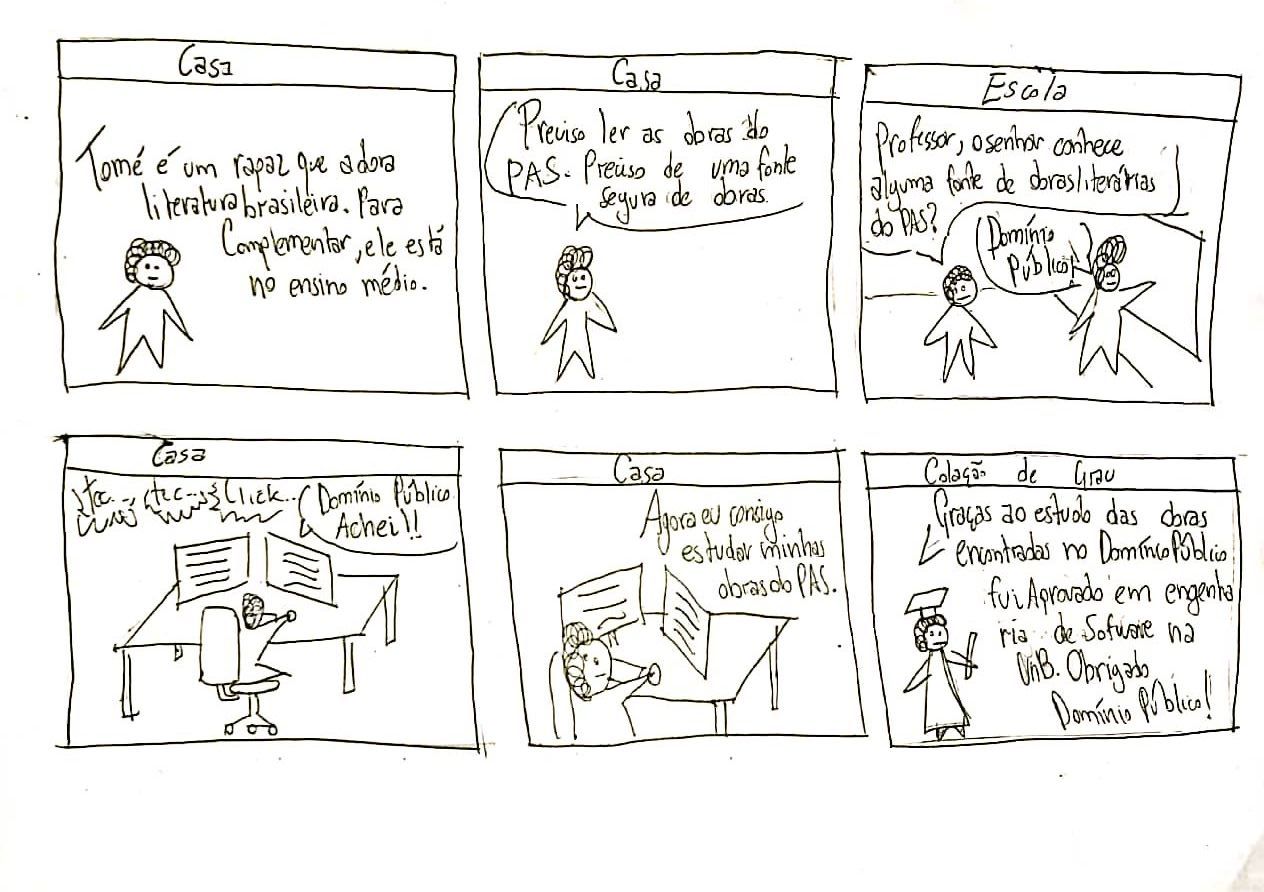 Casa
Tomé é um rapaz que adora
literatura brasileira. Para
Complementar, ele está
no ensino médio.
Casa
Preciso ler as obras do
PAS. Preciso de uma fonte
segura de obras.
Escola
Professor, o senhor conhece
alguma fonte de obras literárias
do PAS?
Domínio
Público!
Casa
tec... tec... Click...
Domínio Público
Achei!!
Casa
Agora eu consigo
estudar minhas
obras do PAS.
Colação de Grau
Graças ao estudo das obras
encontradas no Domínio Público
fui Aprovado em engenha
ria de Sofware na
UnB. Obrigado
Domínio Público!